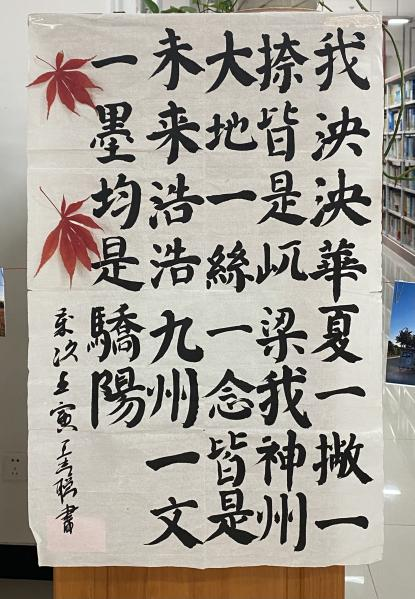 我泱泱華夏一撇一
捺皆是屼梁我神州
大地一絲一念皆是
未来浩浩九州一文
一墨均是驕陽
歲次壬寅王書